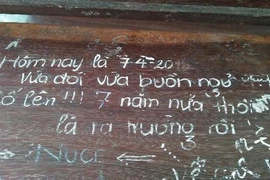 Hôm nay là 7-4-20
Vừa đói vừa buồn ngủ
Cố lên!!! 7 năm nữa thôi
là ra trường rồi
3
→ Nươ ←